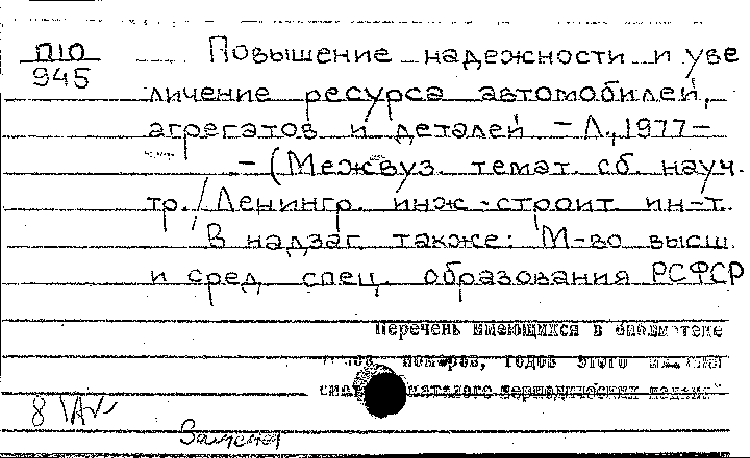 П10
945
Повышение надежности и уве
личение ресурса автомобилей,
агрегатов и деталей. – Л., 1977–
– (Межвуз. темат. сб. науч.
тр. / Ленингр. инж.-строит. ин-т.
В надзаг. также: М-во высш.
и сред. спец. образования РСФСР
Перечень имеющихся в библиотеке
номеров, годов этого издания
каталоге периодических изданий"